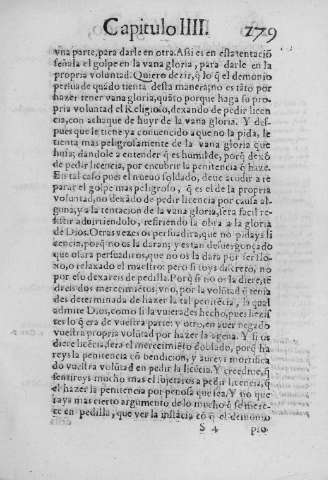 Capitulo IIII. 279
vna parte, para darle en otra. Assi es en esta tentaciō
señala el golpe en la vana gloria, para darle en la
propria voluntad. Quiero dezir, q̃ lo q̃ el demonio
persuade quādo tienta desta manera, no es tāto por
hazer tener vana gloria, quāto porque haga su pro-
pria voluntad el Religioso, dexando de pedir licen
cia, con achaque de huyr de la vana gloria. Y des-
pues que le tiene ya conuencido a que no la pida, le
tienta mas peligrosamente de la vana gloria que
huia, dandole a entender q̃ es humilde, porq̃ dexó
de pedir licencia, por encubrir la penitencia q̃ haze.
En tal caso pues el nueuo soldado, deue acudir a re
parar el golpe mas peligroso, q̃ es el de la propria
voluntad, no dexādo de pedir licencia por causa al-
guna, y a la tentacion de la vana gloria, sera facil re-
sistir aduirtiendolo, refiriendo la obra a la gloria
de Dios. Otras vezes os persuadira, que no pidays li
cencia, porq̃ no os la daran; y es tan desuergonçado
que osara persuadiros, que no os la dara por ser flo-
xo, o relaxado el maestro: pero si soys discreto, no
por esso dexareis de pedilla. Porq̃ si no os la diere, tē
dreis dos merecimiētos, vno, por la volūtad q̃ tenia
des determinada de hazer la tal penitēcia, la qual
admite Dios, como si la vuierades hecho, pues hicis
tes lo q̃ era de vuestra parte: y otro, en auer negado
vuestra propria voluntad por hazer la agena. Y si os
diere licēcia, sera el merecimiēto doblado, porq̃ ha
reys la penitencia cō bendicion, y aureys mortifica
do vuestra volūtad en pedir la licēcia. Y creedme, q̃
sentireys mucho mas el sujetaros a pedir licencia, q̃
el hazer la penitencia por penosa que sea. Y no que
rays mas cierto argumento de lo mucho q̃ se mere-
ce en pedilla, que ver la instācia cō q̃ el demonio
S 4 pro